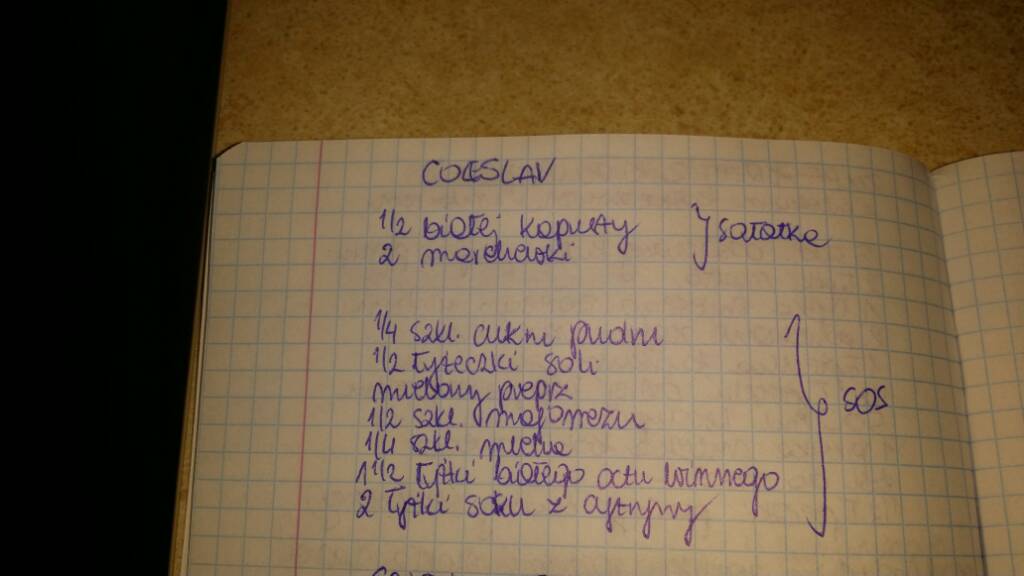 COLESLAV
1/2 białej kapusty
2 marchewki
sałatka
1/4 szkl. cukru pudru
1/2 łyżeczki soli
mielony pieprz
1/2 szkl. majonezu
1/4 szkl. mleka
1 1/2 łyżki białego octu winnego
2 łyżki soku z cytryny
SOS